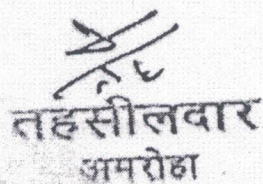 तहसीलदार
अमरोहा